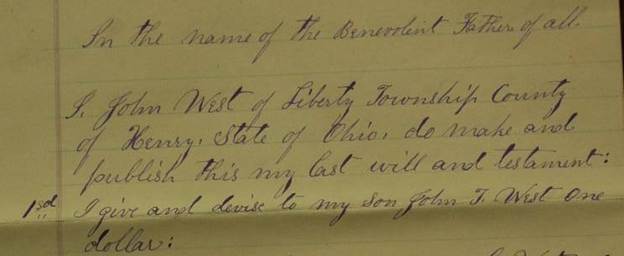 In the name of the Benevolent Father of all.
I, John West of Liberty Township County
of Henry, State of Ohio, do make and
publish this my last will and testament:
1sd I give and devise to my son John T. West One
dollar: